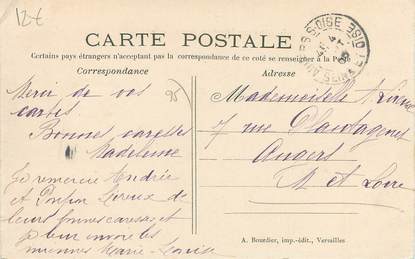 12€
CARTE POSTALE
Certains pays étrangers n'acceptant pas la correspondance de ce coté se renseignement à la Poste
Correspondance
Adresse
Merci de vos
cartes
Bonnes caresses
Madeleine
Je remercie Andrée
et Leroux de
leurs bonnes caresses et
leur envoie les
miennes Marie Louise
Mademoiselle
7 rue Plantagenet
Angers
M et Loire
SEINE ET OISE
A. Bourdier, imp.-édit., Versailles